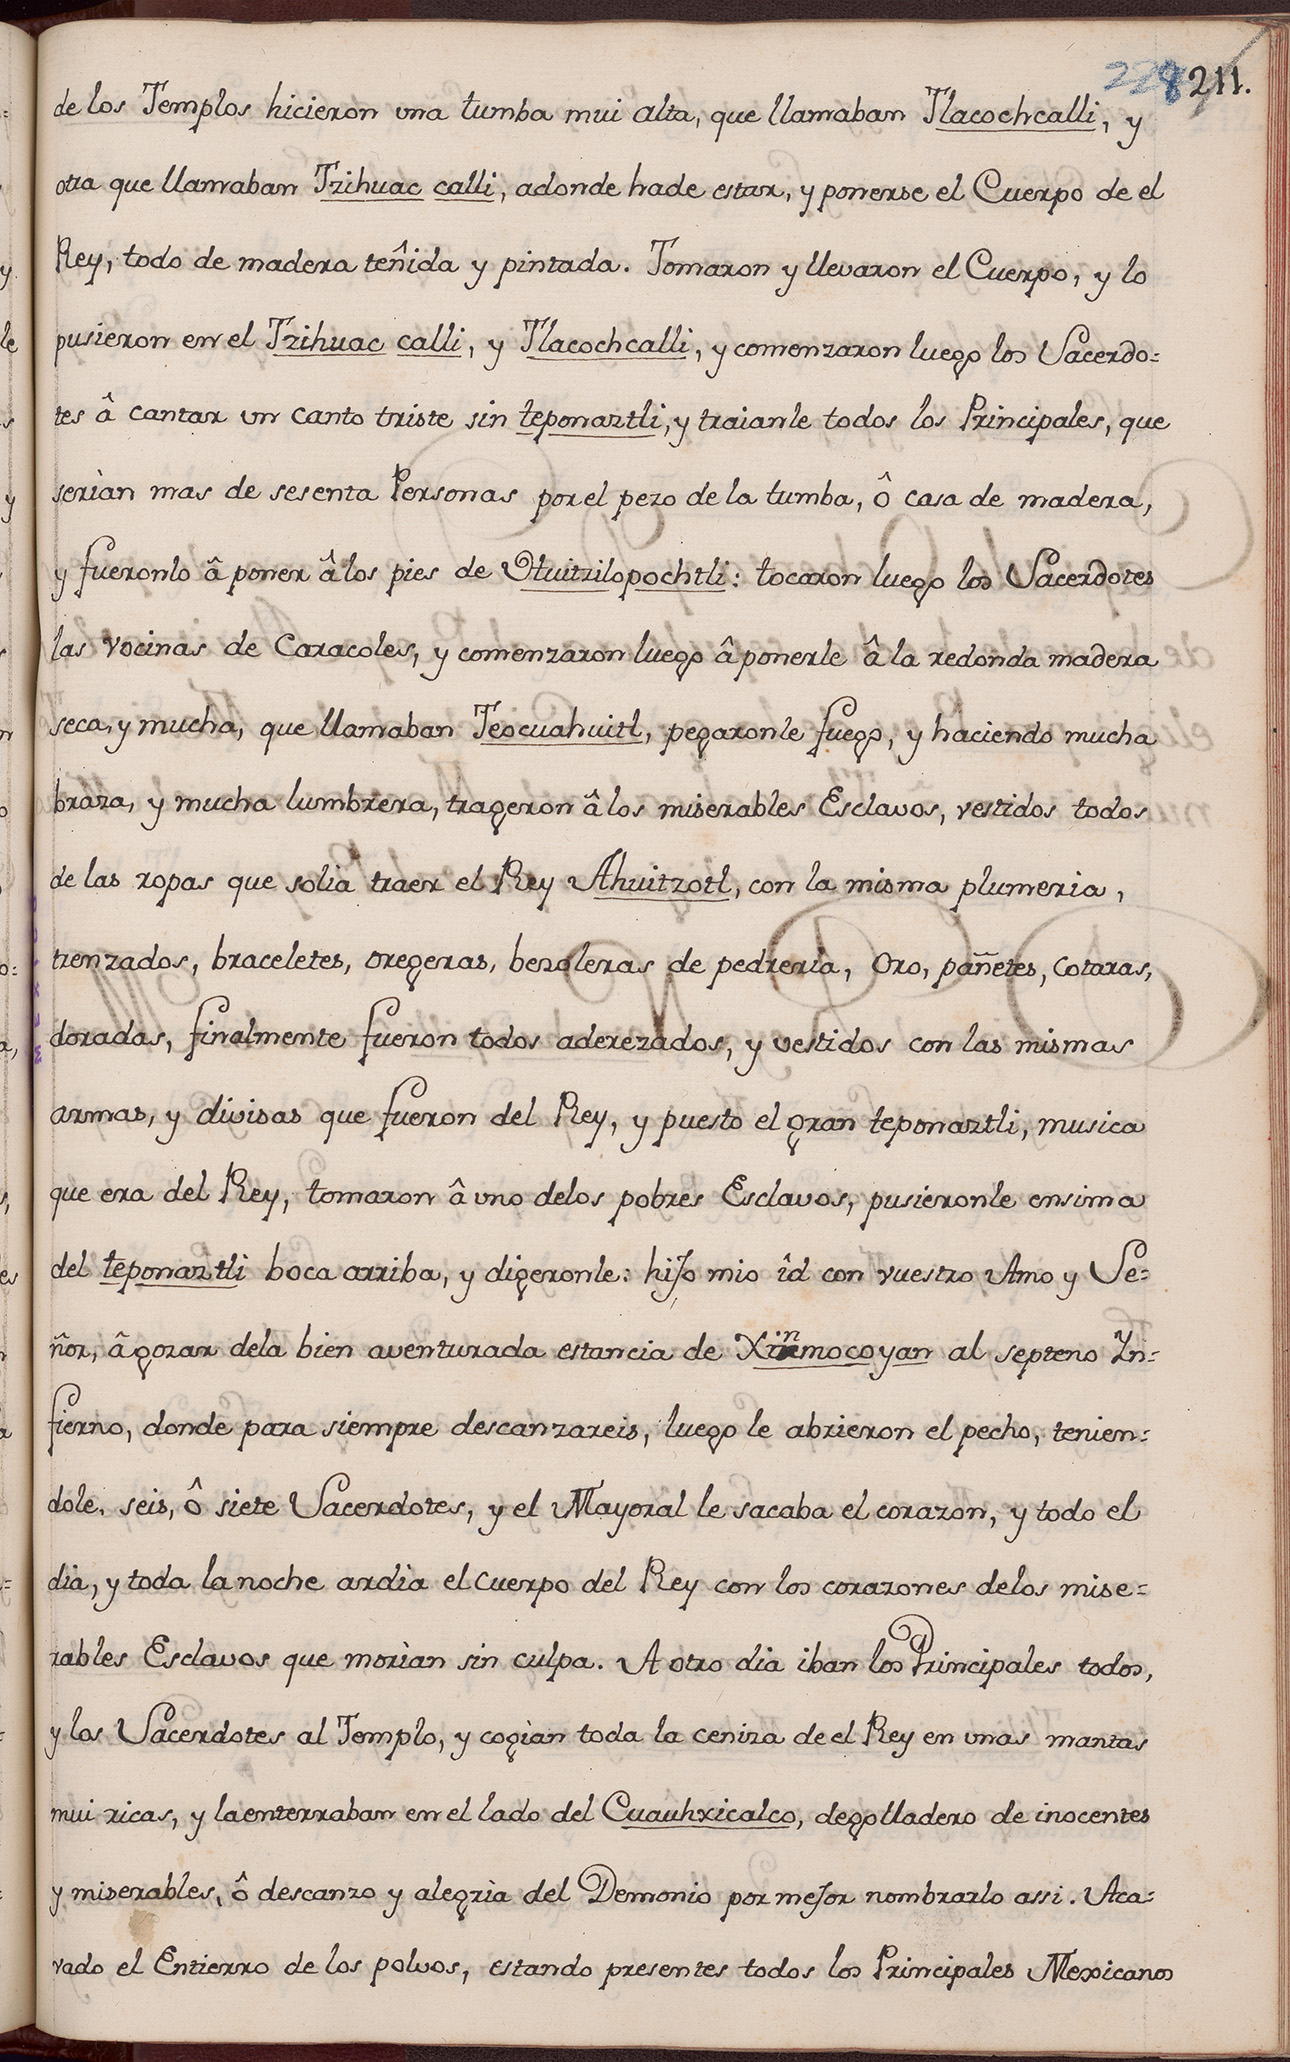 228 211.
de los Templos hicieron una tumba mui alta, que llamaban Tlacochcalli, y
otra que llamaban Tzihuac calli, adonde hade estar, y ponerse el Cuerpo de el
Rey, todo de madera teñida y pintada. Tomaron y llevaron el Cuerpo, y lo
pusieron en el Tzihuac calli, y Tlacochcalli, y comenzaron luego los Sacerdo=
tes â cantar un canto triste sin teponaztli, y traianle todos los Principales, que
serìan mas de sesenta Personas por el pezo de la tumba, ô casa de madera,
y fueronlo â poner â los pies de Huitzilopochtli: tocaron luego los Sacerdotes
las vocinas de Caracoles, y comenzaron luego â ponerle â la redonda madera
seca, y mucha, que llamaban Teocuahuitl, pegaronle fuego, y haciendo mucha
braza, y mucha lumbrera, trageron â los miserables Esclavos, vestidos todos
de las ropas que solìa traer el Rey Ahuitzotl, con la misma plumeria,
trenzados, braceletes, oregeras, bezoleras de pedrerìa, Oro, pañetes, cotaras,
doradas, finalmente fueron todos aderezados, y vestidos con las mismas
armas, y divisas que fueron del Rey, y puesto el gran teponaztli, musica
que era del Rey, tomaron â uno delos pobres Esclavos, pusieronle ensima
del teponaztli boca arriba, y digeronle: hijo mio îd con vuestro Amo y Se=
ñor, â gozar dela bien aventurada estancia de Ximmocoyan al septeno In=
fierno, donde para siempre descanzareis, luego le abrieron el pecho, tenien=
dole, seis, ô siete Sacerdotes, y el Mayoral le sacaba el corazon, y todo el
dìa, y toda la noche ardìa el cuerpo del Rey con los corazones delos mise=
rables Esclavos que morìan sin culpa. A otro dia iban los Principales todos,
y los Sacerdotes al Templo, y cogìan toda la ceniza de el Rey en unas mantas
mui ricas, y la enterraban en el lado del Cuauhxicalco, degolladero de inocentes
y miserables, ô descanzo y alegrìa del Demonio por mejor nombrarlo assi. Aca=
vado el Entierro de los polvos, estando presentes todos los Principales Mexicanos